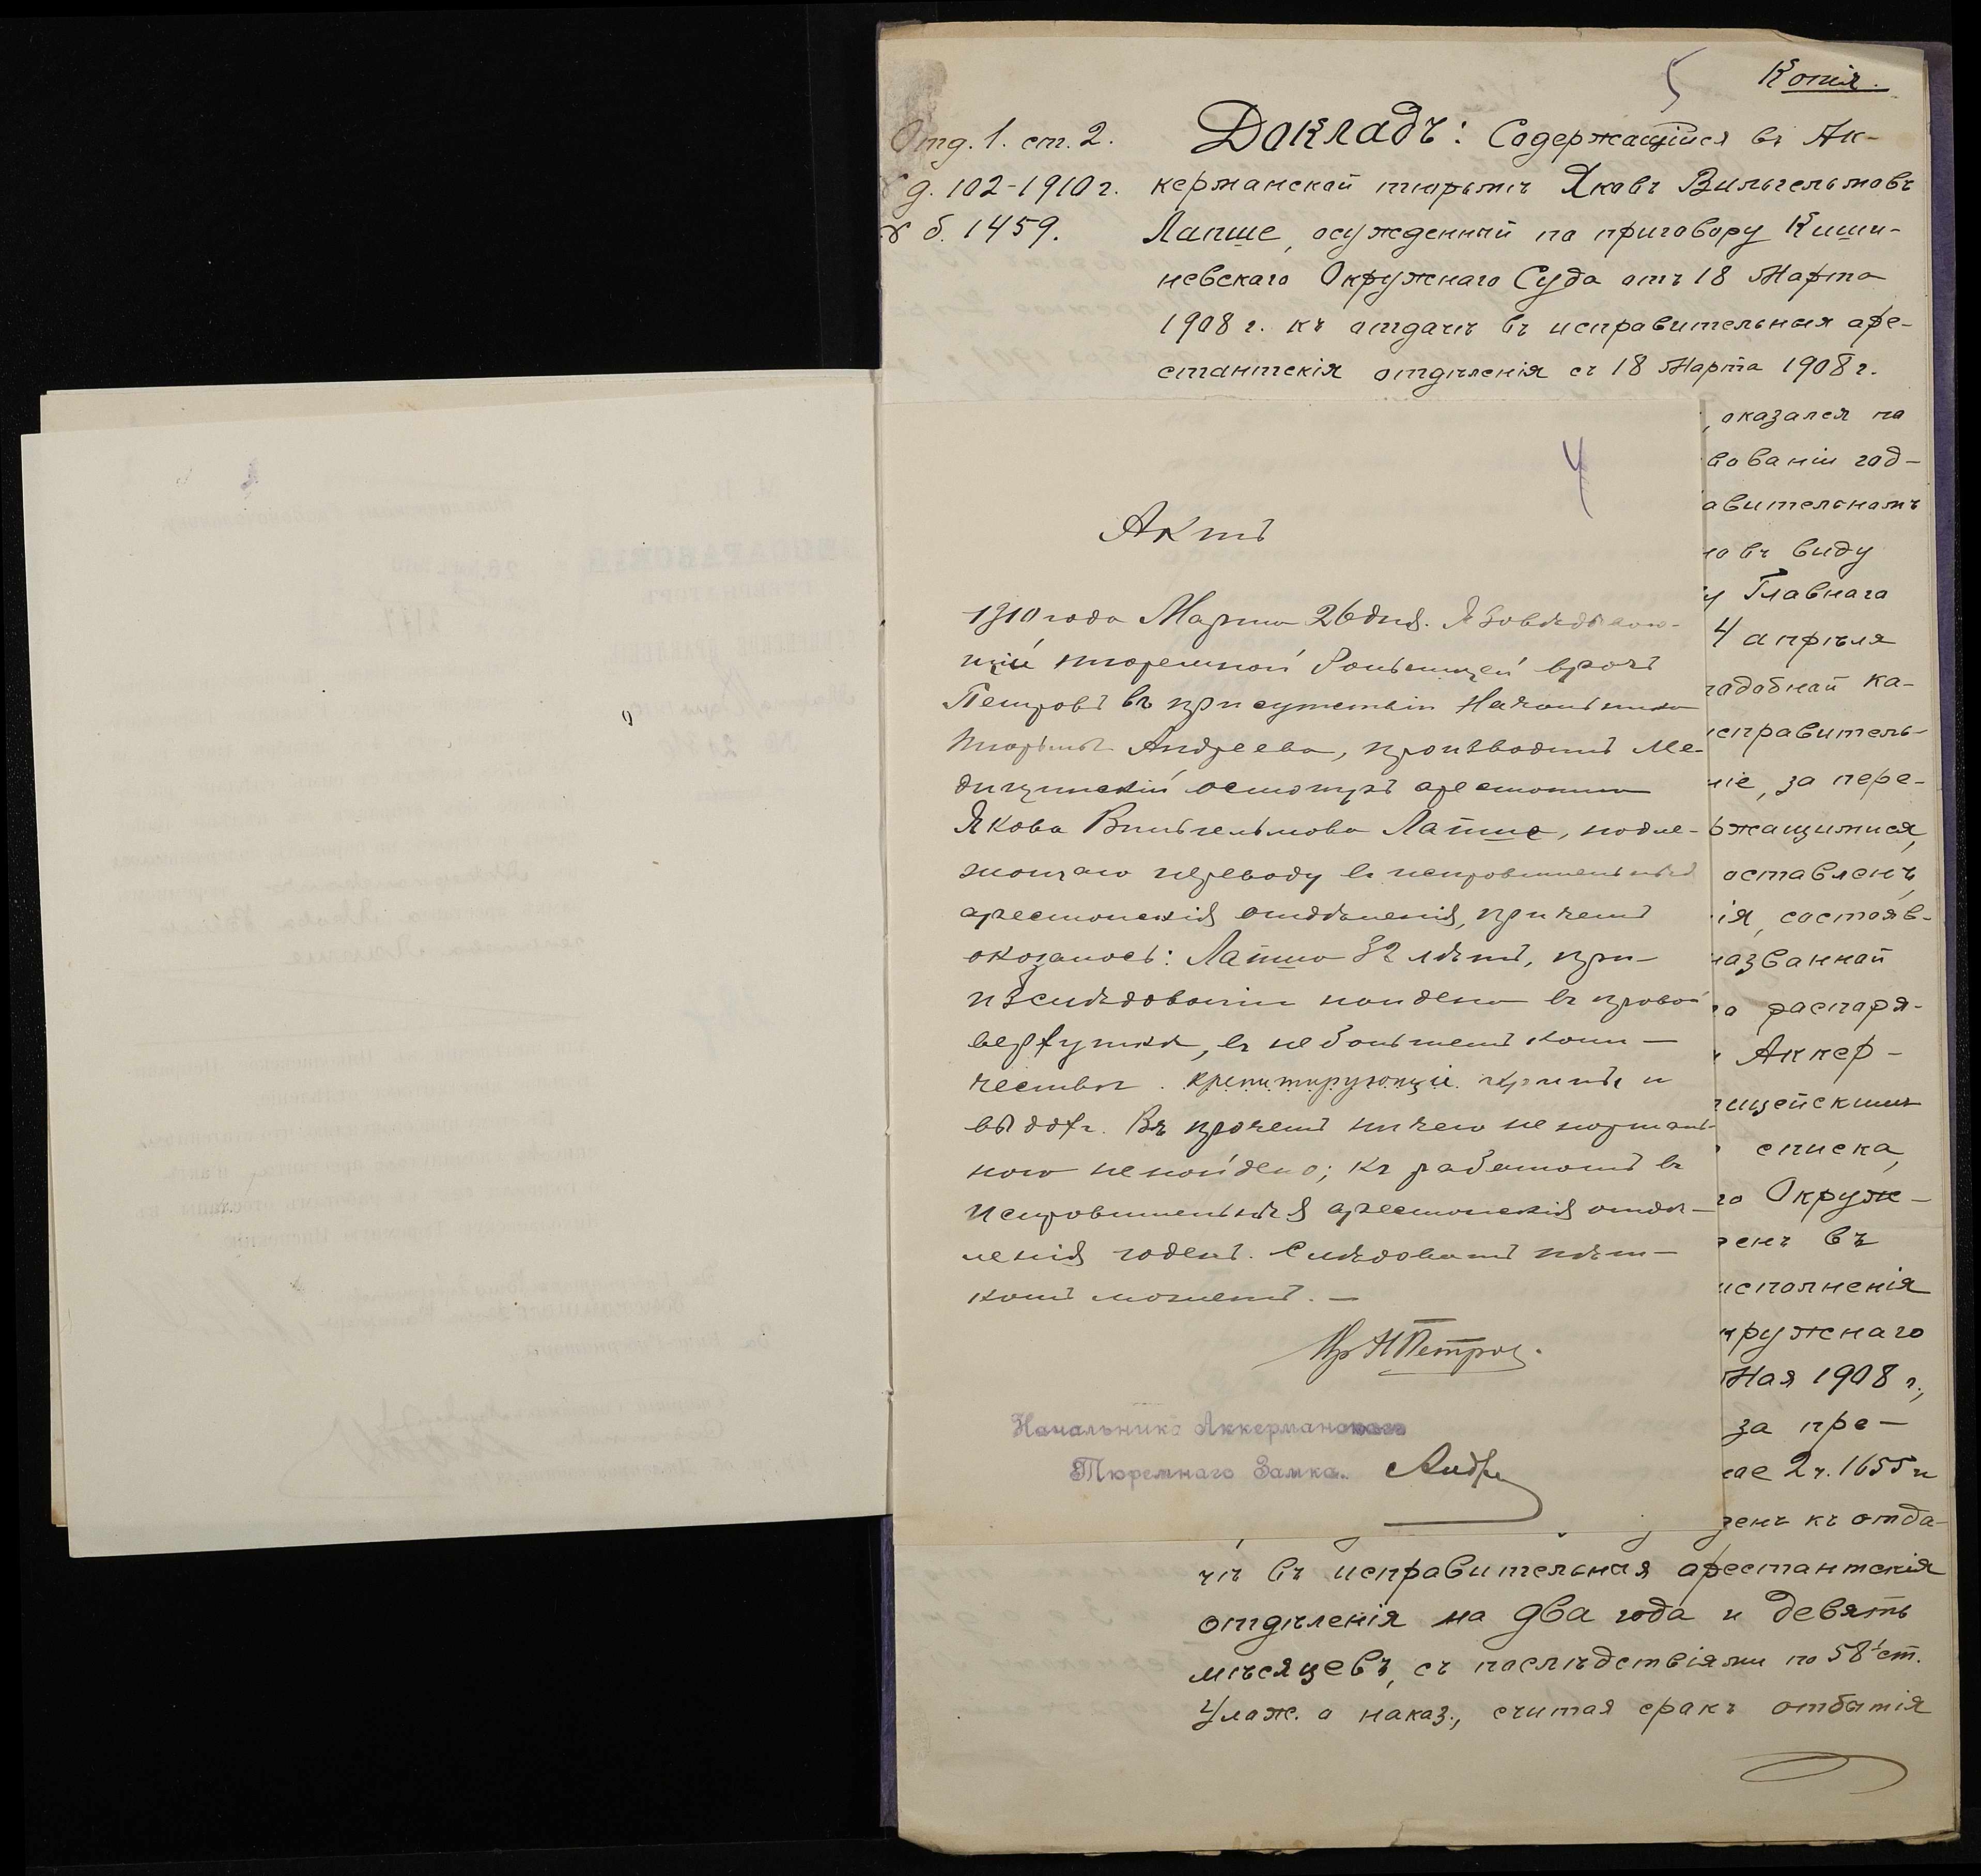 5
Копія.
Отд. 1. ст. 2.
д. 102-1910 г.
б. 1459.
Докладъ: Содержащійся въ Ак-
керманской тюрьмѣ Яковъ Вильгельмовъ
Лапше, осужденный по приговору Киши-
невскаго Окружнаго Суда отъ 18 Марта
1908 г. къ отдачѣ въ исправительныя аре-
стантскія отдѣленія съ 18 Марта 1908 г.
4
Актъ
1910 года Марта 26 дня. Я Завѣдываю-
щій тюремной больницей врачъ
Петровъ въ присутствіи Начальника
тюрьмы Андреева, производилъ ме-
дицинскій осмотръ арестанта
Якова Вильгельмова Лапше, подле-
жащаго переводу въ исправительныя
арестантскія отдѣленія, при чемъ
оказалось: Лапше 32 лѣтъ, при
изслѣдованіи найдено въ правой
верхушкѣ, въ небольшемъ коли-
чествѣ крепитирующіе хрипы и
выдохъ. Въ прочемъ ничего ненормаль-
наго не найдено; къ работамъ въ
исправительныя арестантскія отдѣ-
ленія годенъ. Слѣдовать пѣш-
комъ можетъ. —
Вр. Н Петровъ.
Начальникъ Аккерманскаго
Тюремнаго Замка. Андре
, оказался по
вованіи год-
авительномъ
но въ виду
у Главнаго
4 апрѣля
подобной ка-
исправитель-
ніе, за пере-
ржащимися,
оставленъ
ія, состояв-
названной
по распоря-
Аккер-
ицейскимъ
списка,
го Окруж-
ренъ въ
исполненія
кружнаго
Мая 1908 г.,
за пре-
ное 2 ч. 1655 и
ренъ къ отда-
чѣ въ исправительныя арестантскія
отдѣленія на два года и девять
мѣсяцевъ, съ послѣдствіями по 58¹ ст.
Улож. о наказ., считая срокъ отбытія